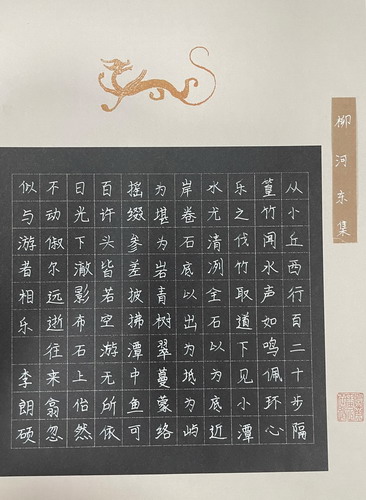 柳河东集
从小丘西行百二十步隔
篁竹闻水声如鸣佩环心
乐之伐竹取道下见小潭
水尤清冽全石以为底近
岸卷石底以出为坻为屿
为堪为岩青树翠蔓蒙络
摇缀参差披拂潭中鱼可
百许头皆若空游无所依
日光下澈影布石上佁然
不动俶尔远逝往来翕忽
似与游者相乐 李朗硕